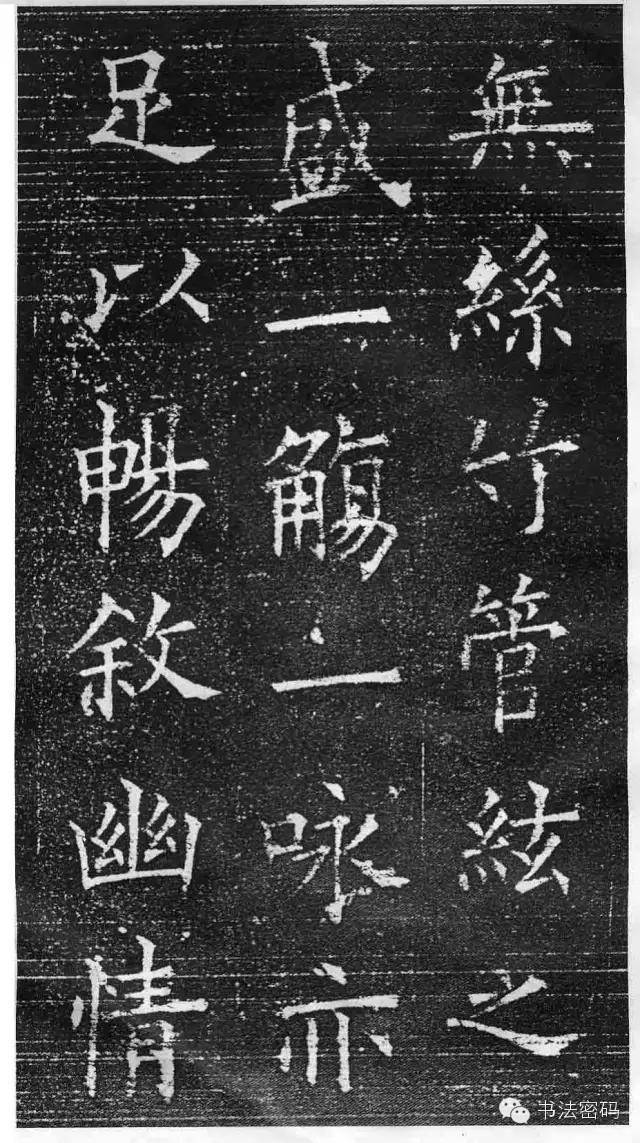 無絲竹管絃之
盛一觴一咏亦
足以暢敘幽情
书法密码